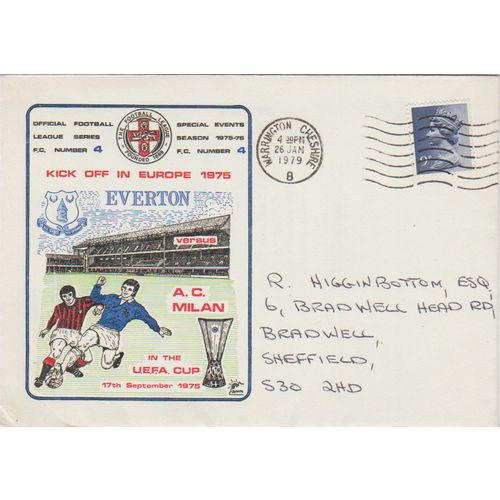 OFFICIAL FOOTBALL
LEAGUE SERIES
F.C. NUMBER 4
THE FOOTBALL LEAGUE
FOUNDED 1888
SPECIAL EVENTS
SEASON 1975-76
F.C. NUMBER 4
KICK OFF IN EUROPE 1975
EVERTON
versus
A.C.
MILAN
IN THE
U.E.F.A. CUP
17th September 1975
WARRINGTON CHESHIRE
4 30PM
26 JAN
1979
B
R. HIGGINBOTTOM, ESQ
6, BRADWELL HEAD RD,
BRADWELL,
SHEFFIELD,
S30 2HD